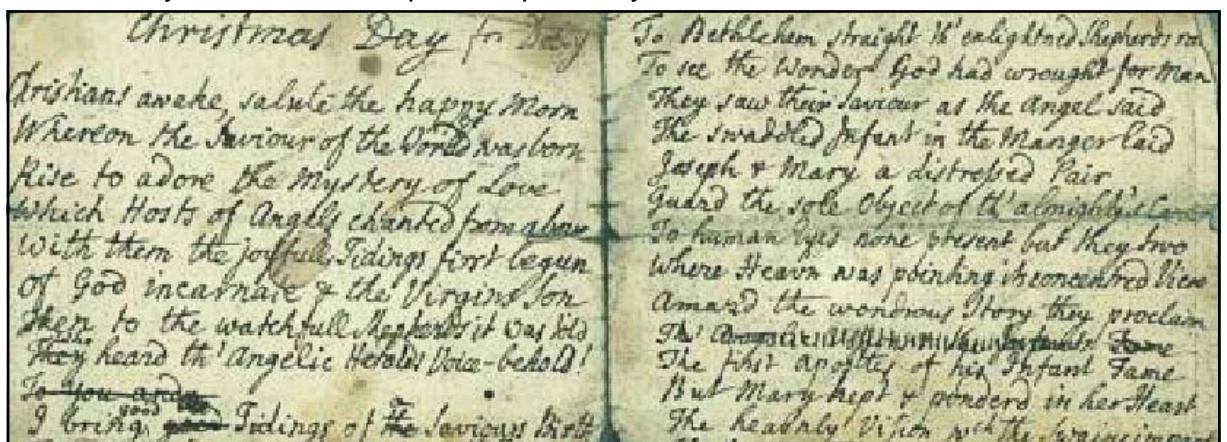 Christmas Day for Dolly
Christians awake, salute the happy Morn
Whereon the Saviour of the World was born
Rise to adore the Mystery of Love
Which Hosts of Angels chanted from above
With them the joyfull Tidings first begun
Of God incarnate & the Virgins Son
Then to the watchfull Shepherds it was told
Who heard th' Angelic Heralds Voice - behold!
To you and
I bring good Tidings of a Saviours Birth
To Bethlehem straight th' enlightned Shepherds ran
To see the Wonder God had wrought for Man
They saw their Saviour as the Angel said
The swaddled Infant in the Manger laid
Joseph & Mary a distressed Pair
Guard the sole Object of th' almighty's Care
To human Eyes none present but they two
Where Heav'n was pointing its concentred View
Amaz'd the wondrous Story they proclaim
Th' Fame
The first Apostles of his Infant Fame
But Mary kept & ponder'd in her Heart
The heav'nly Vision wch the